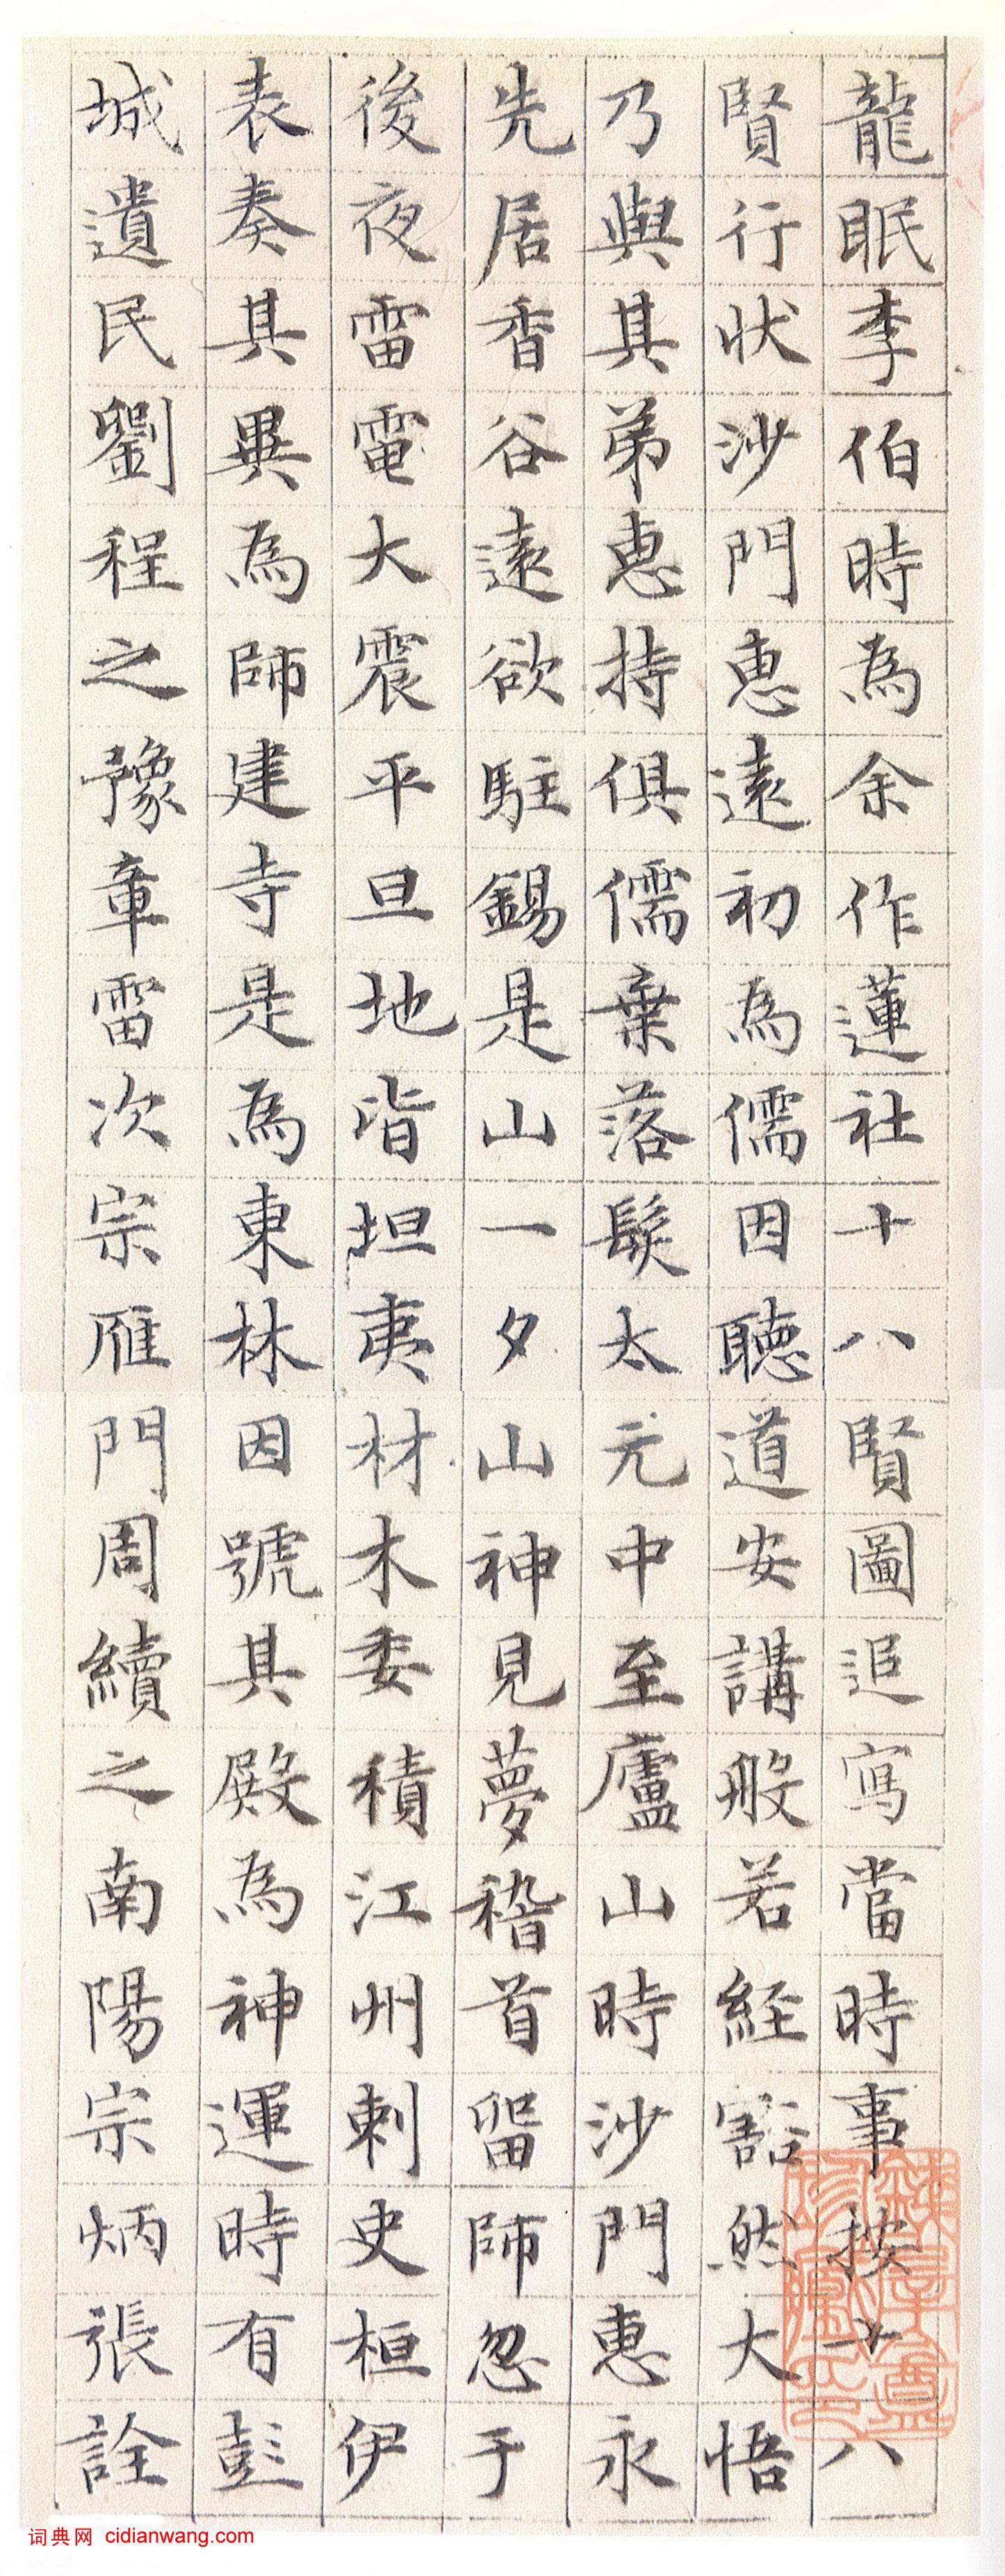 龍眠李伯時為余作蓮社十八賢圖追寫當時事按十八
賢行狀沙門惠遠初為儒因聽道安講般若經豁然大悟
乃與其弟惠持俱儒棄落髮太元中至廬山時沙門惠永
先居香谷遠欲駐錫是山一夕山神見夢稽首留師忽于
後夜雷電大震平旦地皆坦夷材木委積江州刺史桓伊
表奏其異為師建寺是為東林因號其殿為神運時有彭
城遺民劉程之豫章雷次宗雁門周續之南陽宗炳張詮
词典网 cidianwang.com